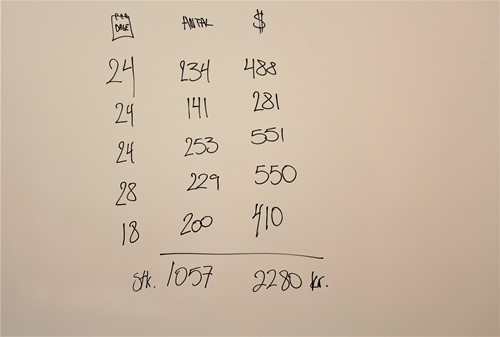 DAGE ANTAL $
24 234 488
24 141 281
24 253 551
28 229 550
18 200 410
Stk. 1057 2280 kr.